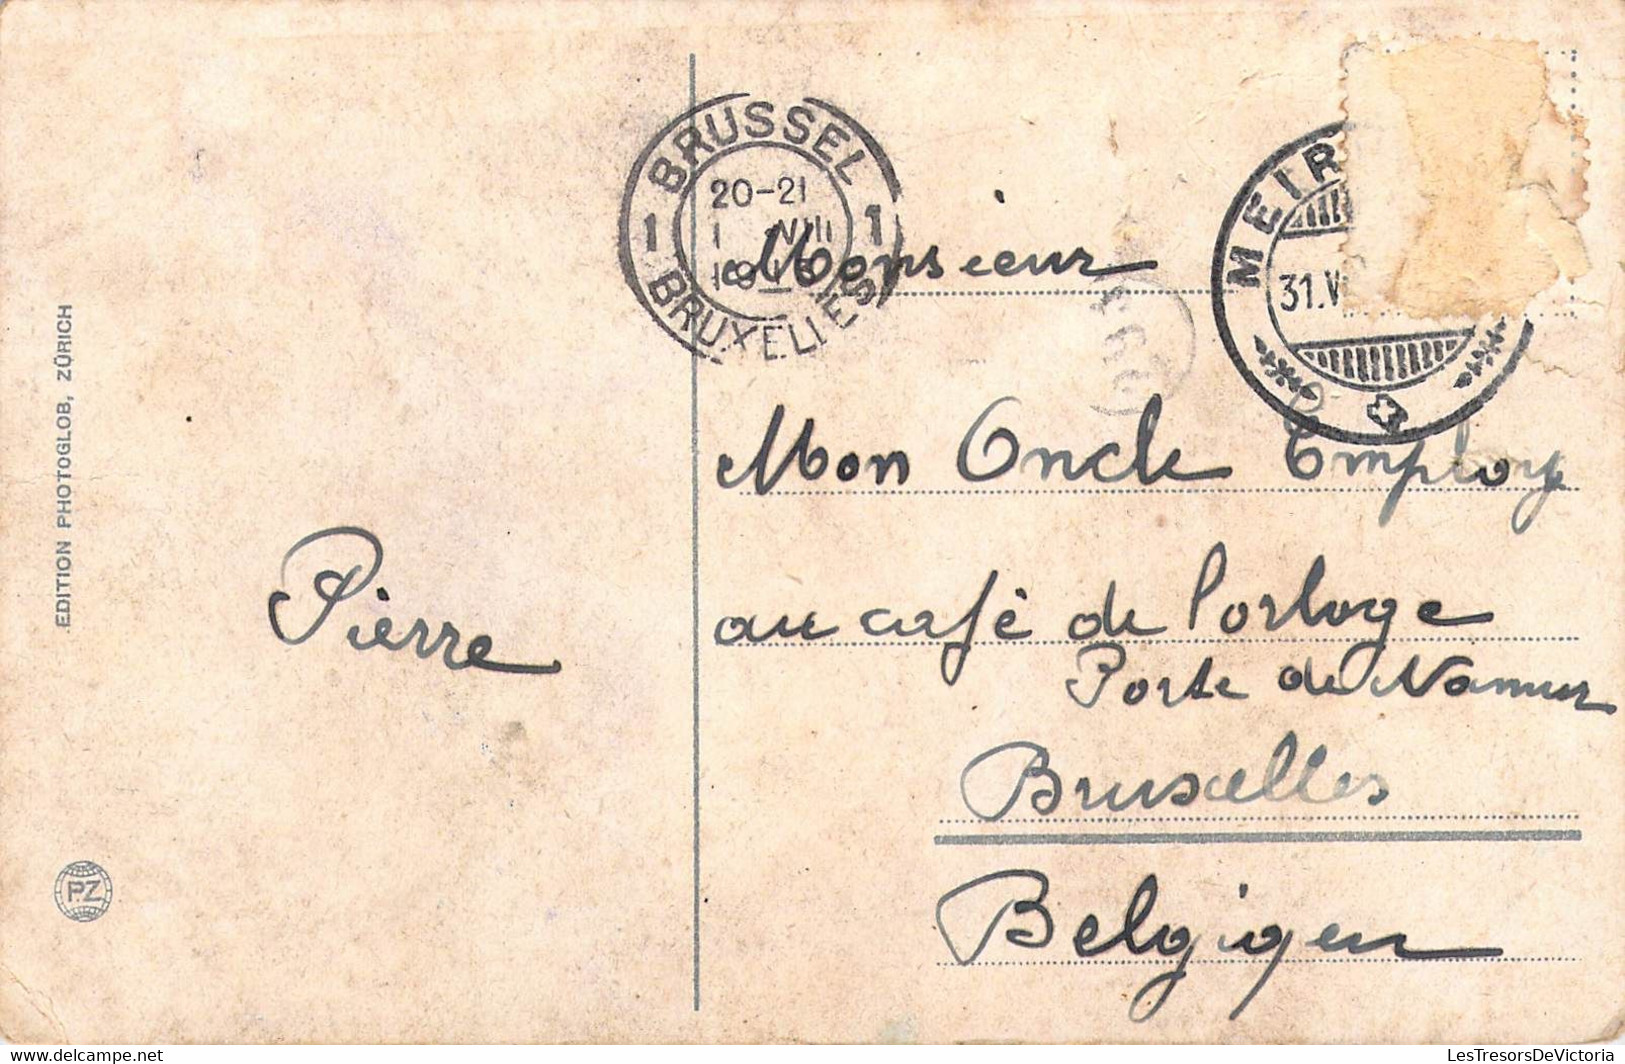 BRUSSEL
20-21
1 VIII
1 1
BRUXELLES
MEIR
31.V
Monsieur
Mon Oncle Employ
au café de l'orloge
Porte de Namur
Bruxelles
Belgigen
Pierre
EDITION PHOTOGLOB, ZÜRICH
PZ
LesTresorsDeVictoria